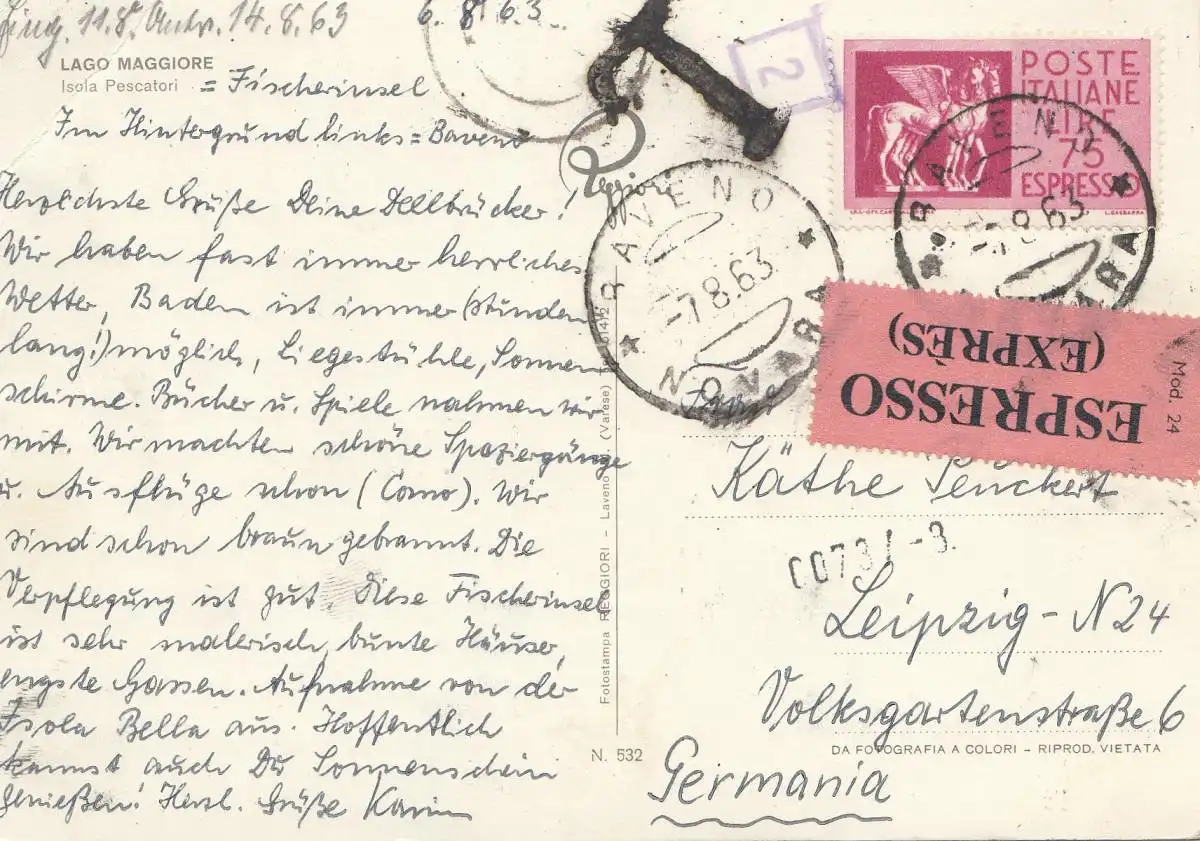 Eing. 11.8. Antw. 14.8.63
6. 8. 63
LAGO MAGGIORE
Isola Pescatori = Fischerinsel
Im Hintergrund links = Baveno
Herzlichste Grüße Deine Dellbrücker!
Wir haben fast immer herrliches
Wetter, Baden ist immer (stunden
lang!) möglich, Liegestühle, Sonnen
schirme. Bücher u. Spiele nahmen wir
mit. Wir machten schöne Spaziergänge
u. Ausflüge schon (Como). Wir
sind schon braun gebrannt. Die
Verpflegung ist gut. Diese Fischerinsel
ist sehr malerisch, bunte Häuser,
engste Gassen. Aufnahme von der
Isola Bella aus. Hoffentlich
kannst auch Du Sonnenschein
genießen! Herzl. Grüße Karin
T
2
Reggiori
Fotostampa REGGIORI - Laveno (Varese)
N. 532
POSTE
ITALIANE
LIRE
75
ESPRESSO
L. GASBARRA
BAVENO
-7.8.63
NOVARA
BAVENO
-7.8.63
NOVARA
ESPRESSO
(EXPRÈS)
Mod. 24
Käthe Peuckert
Leipzig-N24
Volksgartenstraße 6
DA FOTOGRAFIA A COLORI - RIPROD. VIETATA
Germania